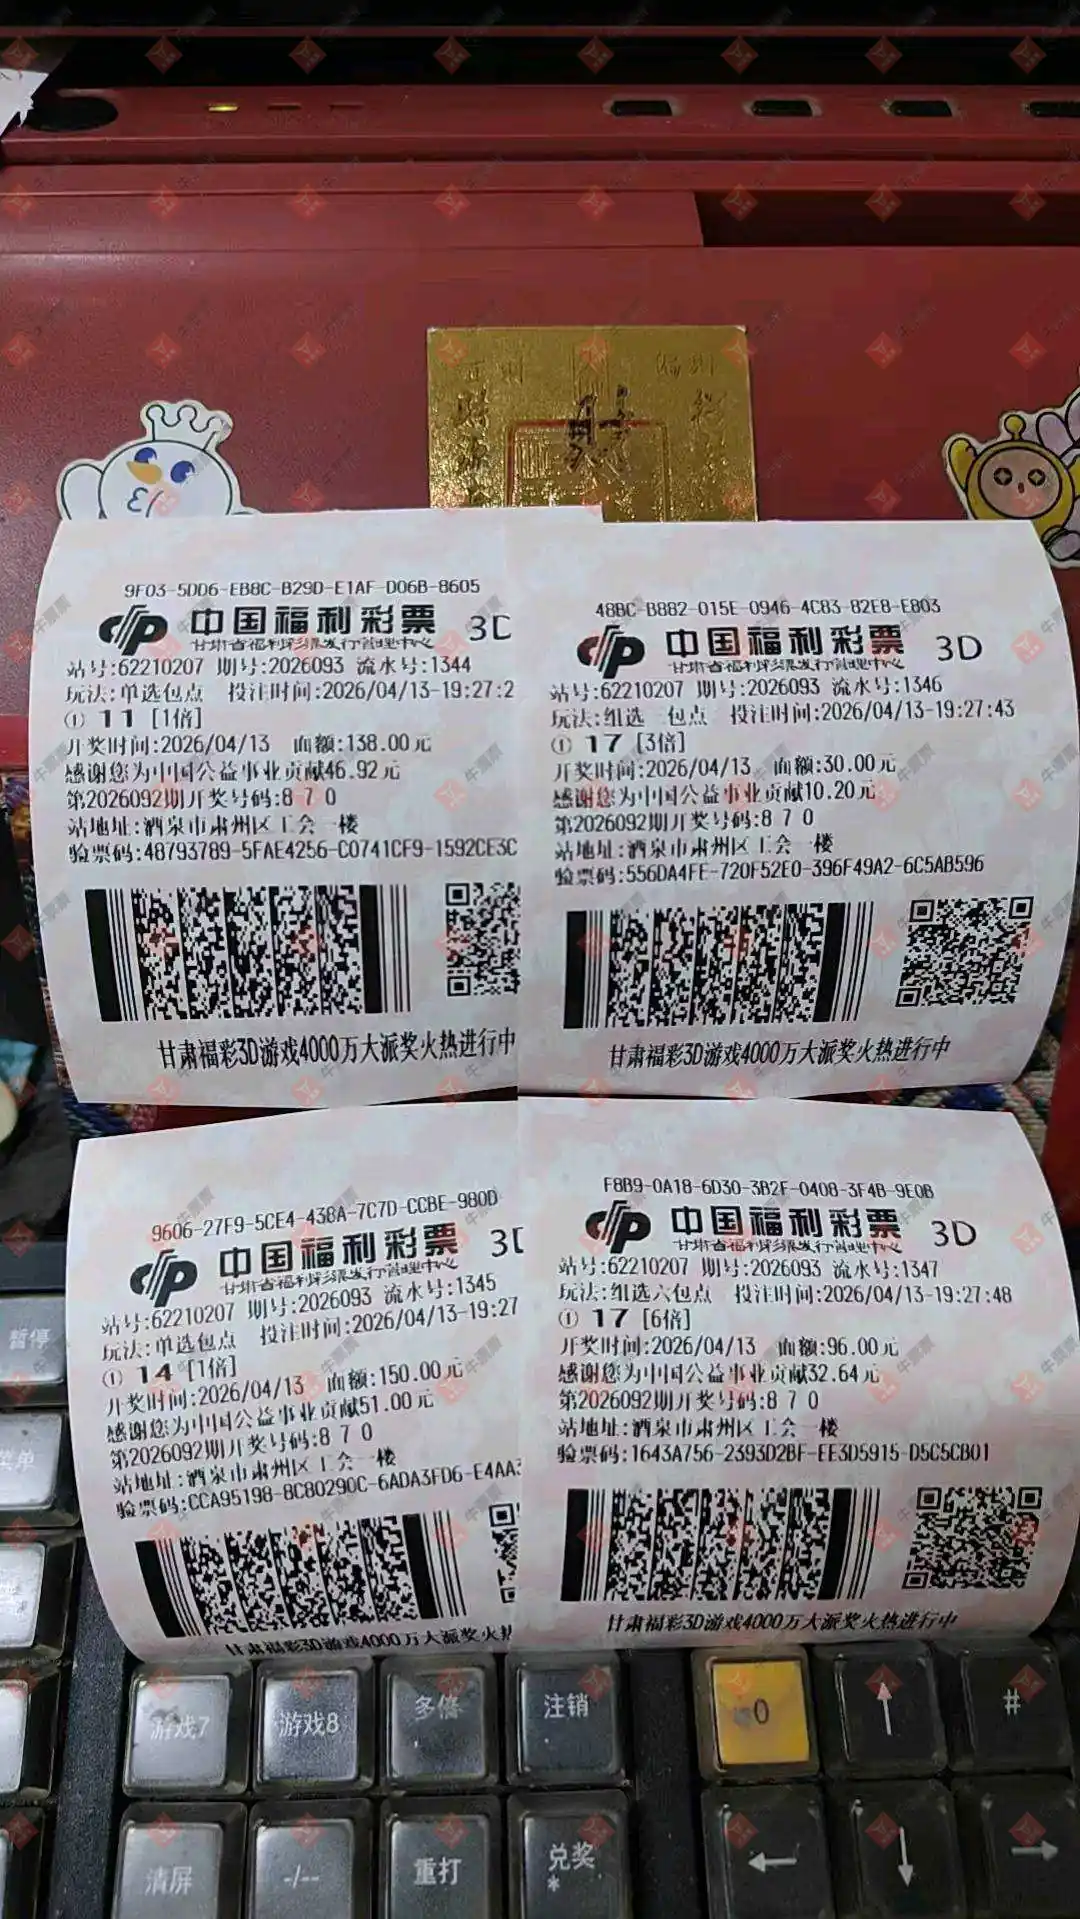 9F03-5DD6-EB8C-B29D-E1AF-D06B-8605
中国福利彩票 3D
甘肃省福利彩票发行管理中心
站号:62210207 期号:2026093 流水号:1344
玩法:单选包点 投注时间:2026/04/13-19:27:2
① 11 [1倍]
开奖时间:2026/04/13 面额:138.00元
感谢您为中国公益事业贡献46.92元
第2026092期开奖号码:8 7 0
站地址:酒泉市肃州区工会一楼
验票码:48793789-5FAE4256-C0741CF9-1592CE3C
甘肃福彩3D游戏4000万大派奖火热进行中
48BC-B882-015E-0946-4C83-82E8-E803
中国福利彩票 3D
甘肃省福利彩票发行管理中心
站号:62210207 期号:2026093 流水号:1346
玩法:组选三包点 投注时间:2026/04/13-19:27:43
① 17 [3倍]
开奖时间:2026/04/13 面额:30.00元
感谢您为中国公益事业贡献10.20元
第2026092期开奖号码:8 7 0
站地址:酒泉市肃州区工会一楼
验票码:556DA4FE-720F52E0-396F49A2-6C5AB596
甘肃福彩3D游戏4000万大派奖火热进行中
9606-27F9-5CE4-438A-7C7D-CCBE-980D
中国福利彩票 3D
甘肃省福利彩票发行管理中心
站号:62210207 期号:2026093 流水号:1345
玩法:单选包点 投注时间:2026/04/13-19:27
① 14 [1倍]
开奖时间:2026/04/13 面额:150.00元
感谢您为中国公益事业贡献51.00元
第2026092期开奖号码:8 7 0
站地址:酒泉市肃州区工会一楼
验票码:CCA95198-8C80290C-6ADA3FD6-E4AA3
甘肃福彩3D游戏4000万大派奖火热
F8B9-0A18-6D30-3B2F-0408-3F4B-9E0B
中国福利彩票 3D
甘肃省福利彩票发行管理中心
站号:62210207 期号:2026093 流水号:1347
玩法:组选六包点 投注时间:2026/04/13-19:27:48
① 17 [6倍]
开奖时间:2026/04/13 面额:96.00元
感谢您为中国公益事业贡献32.64元
第2026092期开奖号码:8 7 0
站地址:酒泉市肃州区工会一楼
验票码:1643A756-2393D2BF-EE3D5915-D5C5CB01
甘肃福彩3D游戏4000万大派奖火热进行中
暂停
菜单
游戏7 游戏8 多倍 注销 0 ↑ #
清屏 -/-- 重打 兑奖 * ← ↓ →